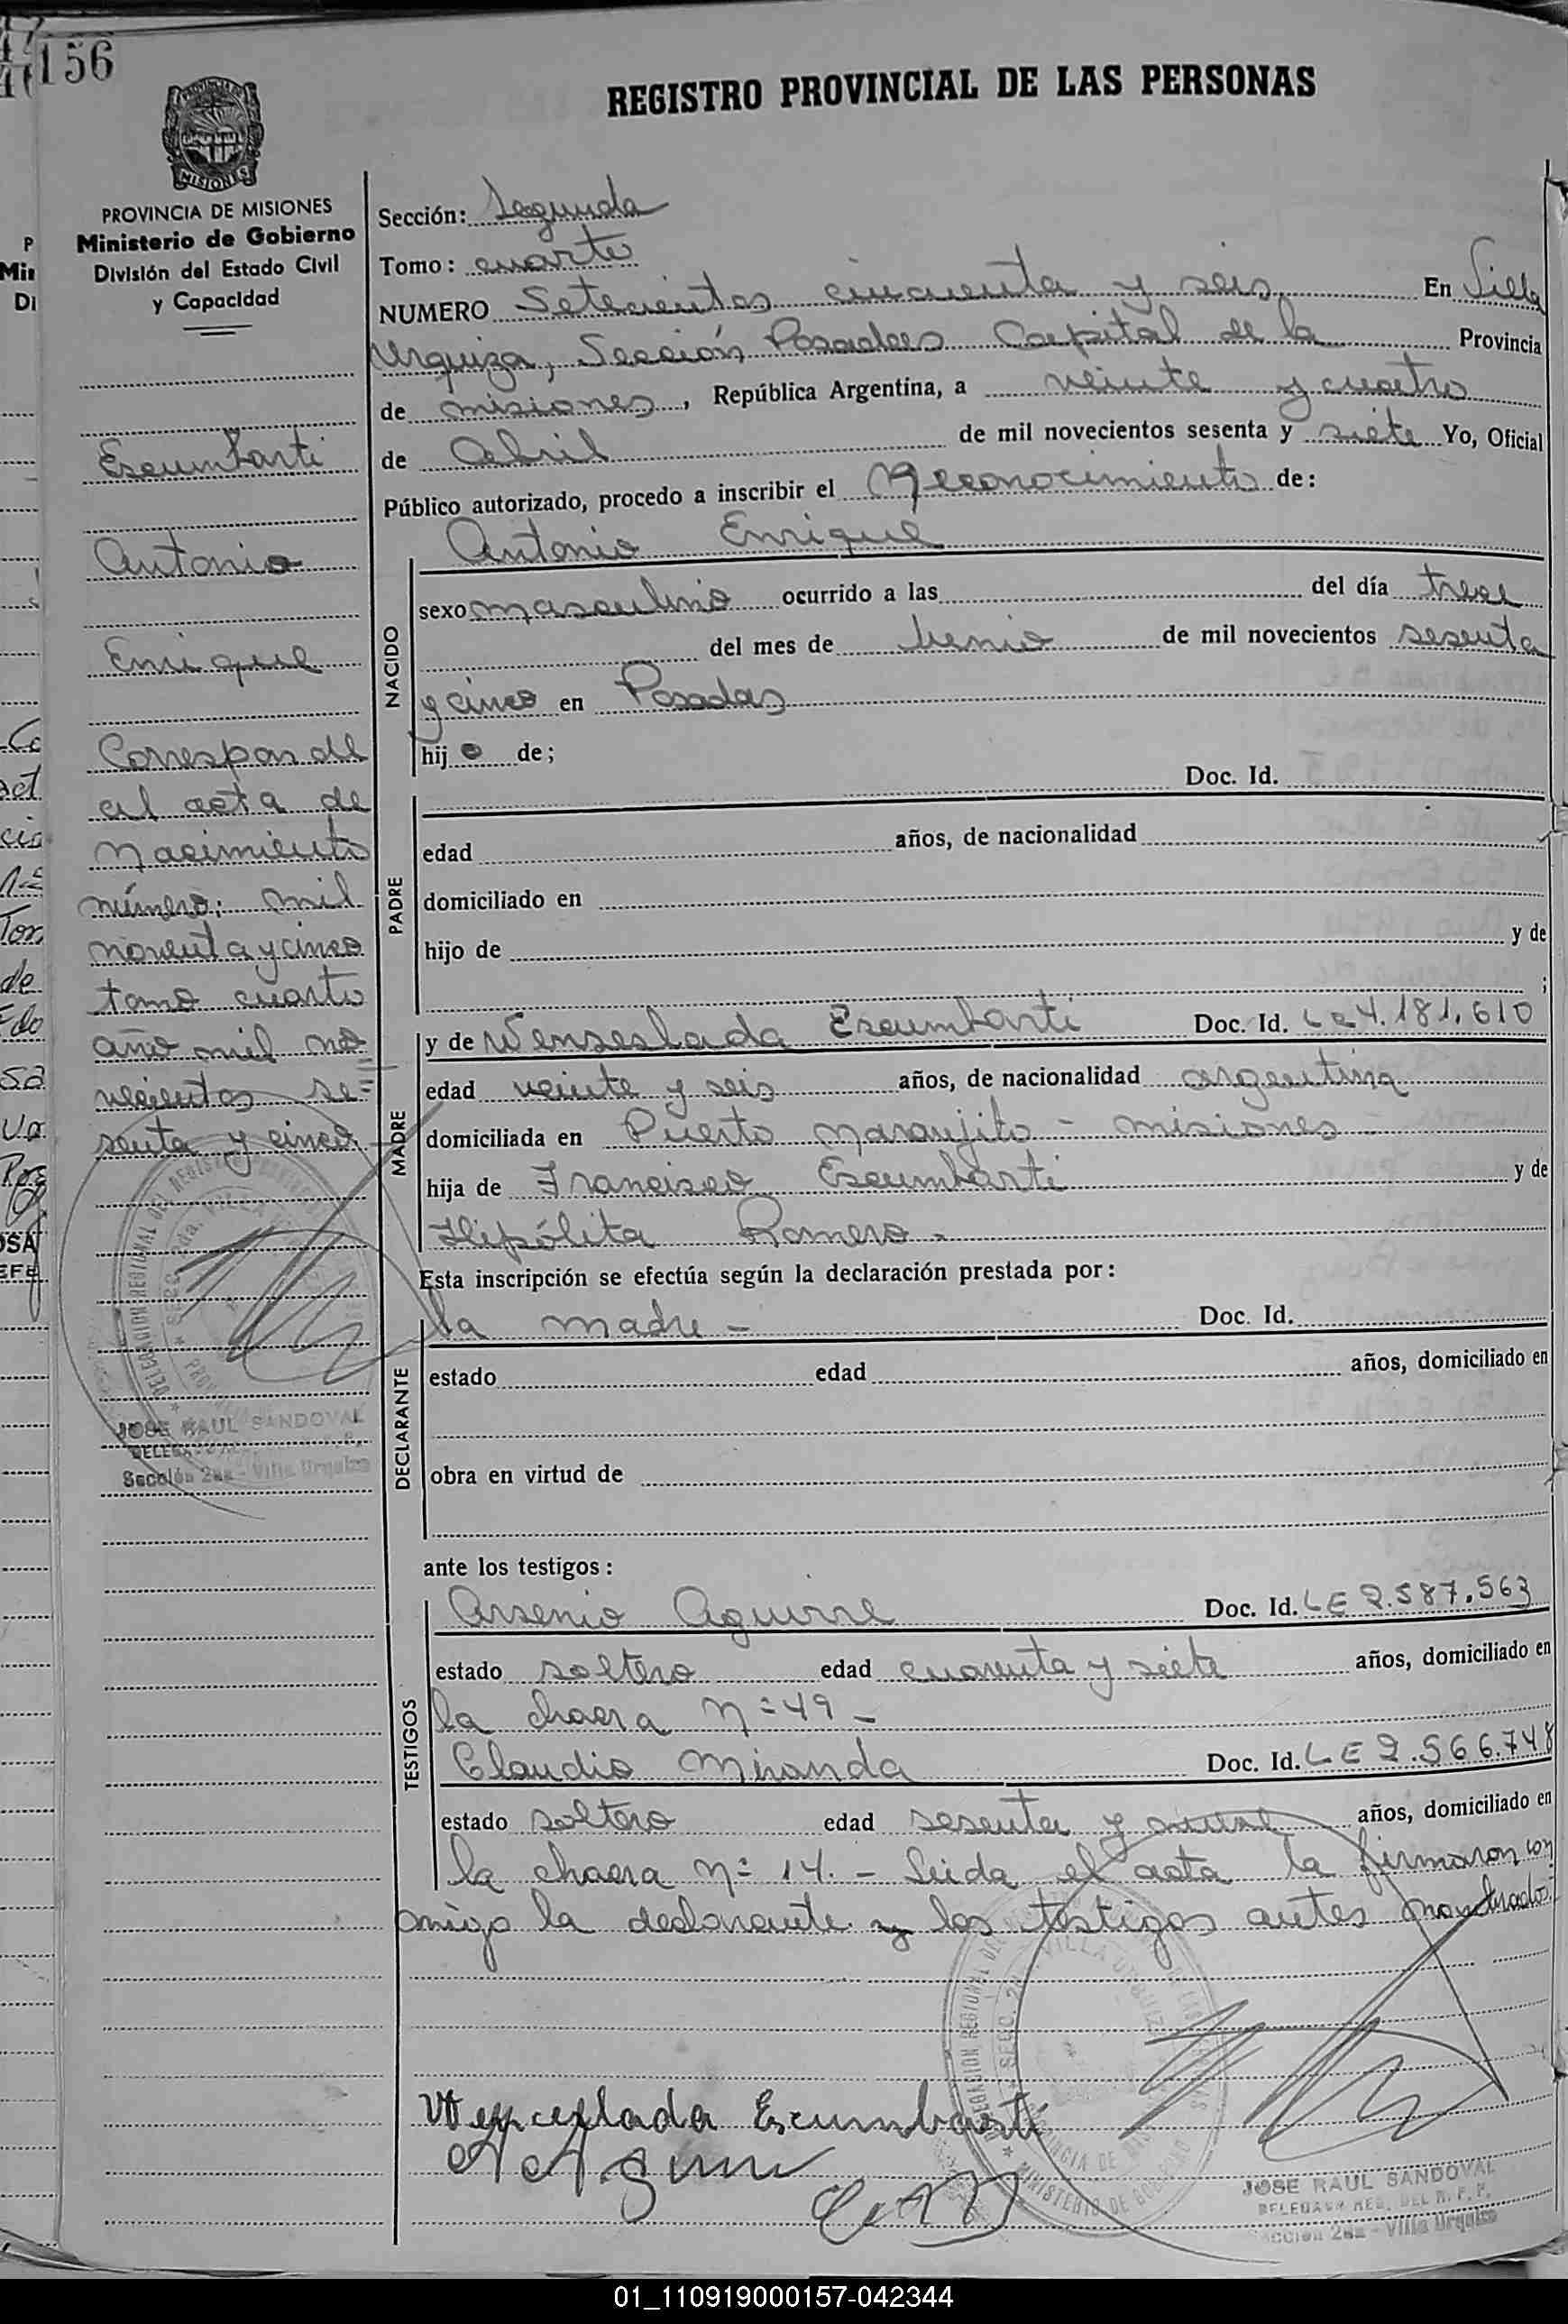 156
REGISTRO PROVINCIAL DE LAS PERSONAS
MISIONES
PROVINCIA DE MISIONES
Ministerio de Gobierno
División del Estado Civil
y Capacidad
Escumbarti
Antonio
Enrique
Corresponde
al acta de
Nacimiento
número: mil
noventa y cinco
tomo cuarto
año mil no=
vecientos se=
senta y cinco
JOSE RAUL SANDOVAL
Sección 2da - Villa Urquiza
Sección: Segunda
Tomo: cuarto
NUMERO Setecientos cincuenta y seis En Villa
Urquiza, Sección Posadas Capital de la Provincia
de misiones, República Argentina, a veinte y cuatro
de Abril de mil novecientos sesenta y siete Yo, Oficial
Público autorizado, procedo a inscribir el Reconocimiento de:
Antonio Enrique
NACIDO
sexo masculino ocurrido a las del día trece
del mes de Junio de mil novecientos sesenta
y cinco en Posadas
hijo de;
Doc. Id.
PADRE
edad años, de nacionalidad
domiciliado en
hijo de y de
;
MADRE
y de Wenseslada Escumbarti Doc. Id. Lc 4.181.610
edad veinte y seis años, de nacionalidad argentina
domiciliada en Puerto naranjito - misiones -
hija de Francisco Escumbarti y de
Hipólita Romero -
Esta inscripción se efectúa según la declaración prestada por:
DECLARANTE
la madre - Doc. Id.
estado edad años, domiciliado en
obra en virtud de
ante los testigos:
TESTIGOS
Arsenio Aguirre Doc. Id. LE 2.587.563
estado soltero edad cuarenta y siete años, domiciliado en
la chacra Nº 49 -
Claudio Miranda Doc. Id. LE 2.566.748
estado soltero edad sesenta y años, domiciliado en
la chacra Nº 14. - Leida el acta la firmaron con
migo la declarante y los testigos antes nombrados.
Wenceslada Escumbarti
JOSE RAUL SANDOVAL
DELEGADO REG. DEL R. P. P.
Sección 2da - Villa Urquiza
01_110919000157-042344